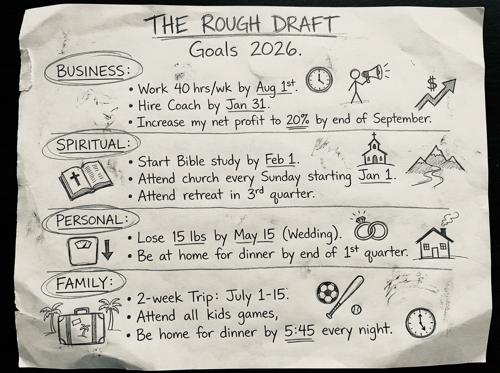 THE ROUGH DRAFT
Goals 2026.
BUSINESS:
• Work 40 hrs/wk by Aug 1st.
• Hire Coach by Jan 31.
• Increase my net profit to 20% by end of September.
$
SPIRITUAL:
• Start Bible study by Feb 1.
• Attend church every Sunday starting Jan 1.
• Attend retreat in 3rd quarter.
PERSONAL:
• Lose 15 lbs by May 15 (Wedding).
• Be at home for dinner by end of 1st quarter.
FAMILY:
• 2-week Trip: July 1-15.
• Attend all kids games,
• Be home for dinner by 5:45 every night.